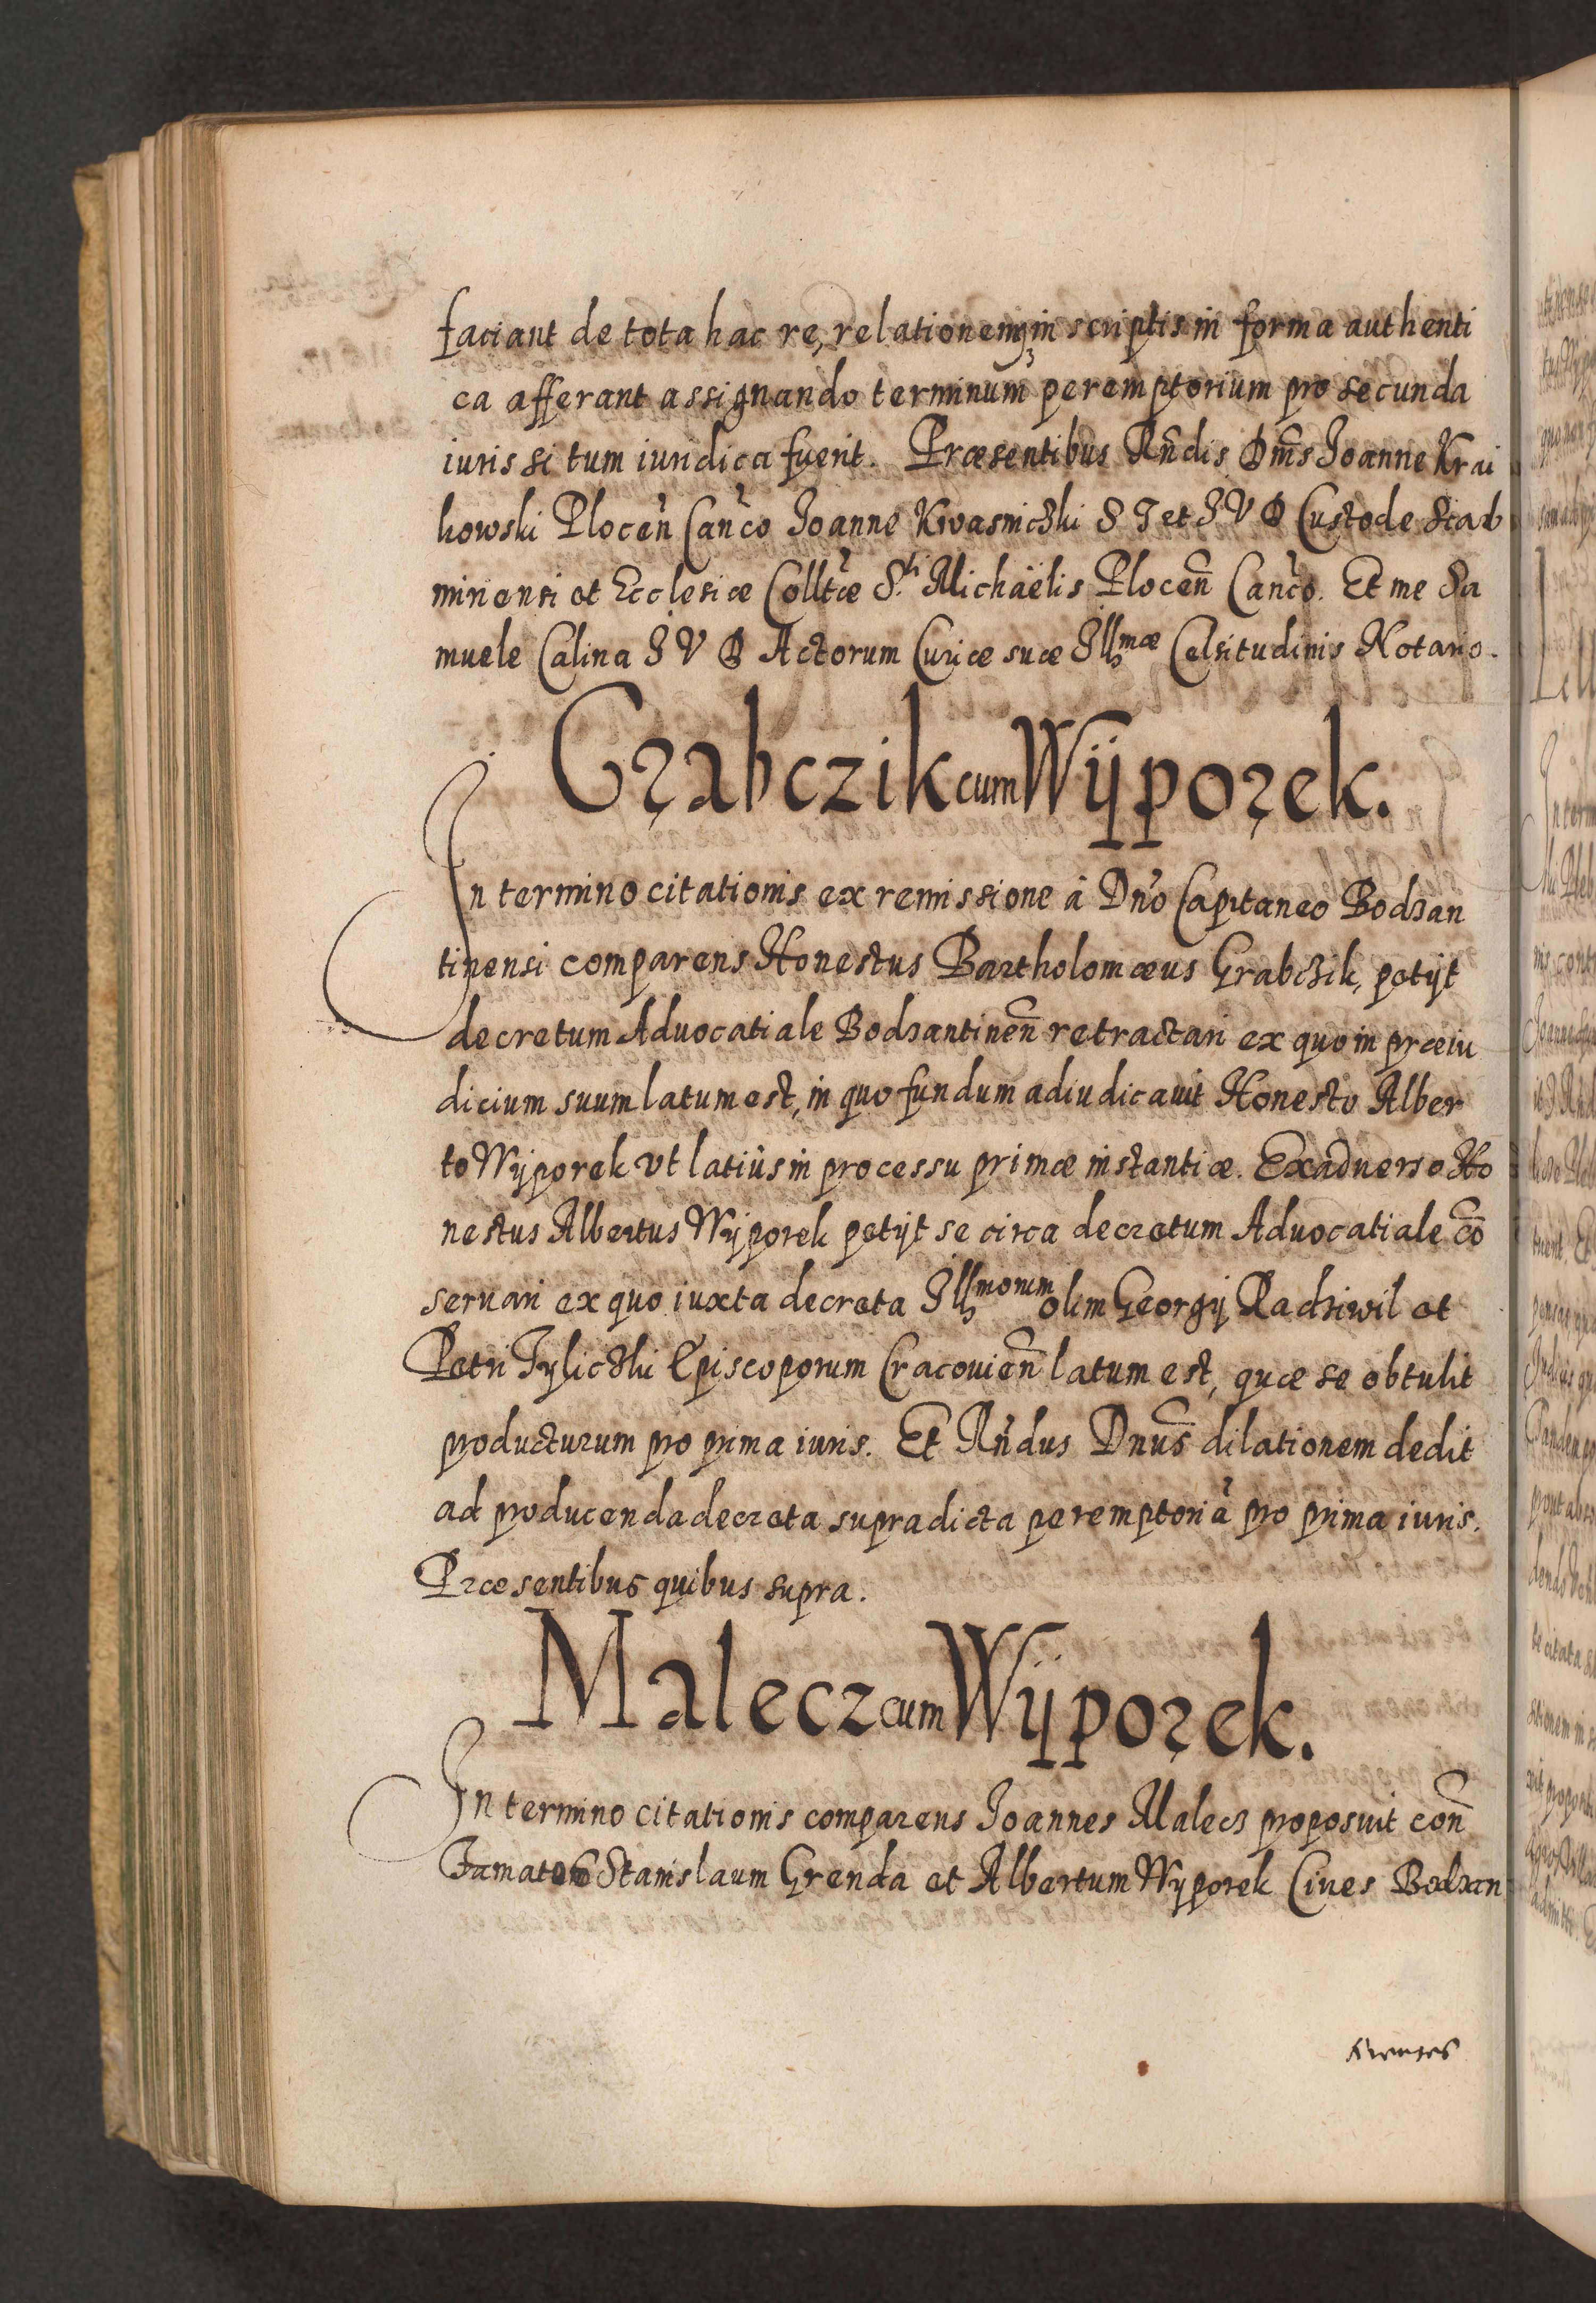 faciant de tota hac re, relationemq3 in scriptis in forma authenti
ca afferant assignando terminum peremptorium pro secunda
iuris si tum iuridica fuerit. Præsentibus Rñdis Dm̃s Joanne Krai
kowski Plocen̄ Can̄co Joanne Kwasniczki S T et J V D Custode Scarb
miriensi et Ecclesiæ Colltæ S.ti Michaëlis Plocen̄ Can̄co. Et me Sa
muele Calina J V D Actorum Curiæ suæ Illmæ Celsitudinis Notario.
Grabczik cum Wÿporek.
In termino citationis ex remissione â Dn̄o Capitaneo Bodzan
tinensi comparens Honestus Bartholomæus Grabczik, petijt
decretum Aduocatiale Bodzantinen̄ retractari ex quo in præiu
dicium suum latum est, in quo fundum adiudicauit Honesto Alber
to Wÿporek vt latiùs in processu primæ instantiæ. Exaduerso Ho
nestus Albertus Wÿporek petijt se circa decretum Aduocatiale cō
seruari ex quo iuxta decreta Illmorum olim Georgij Radziwil et
Petri Tyliczki Episcoporum Cracouien̄ latum est, quæ se obtulit
producturum pro prima iuris. Et Rñdus Dnūs dilationem dedit
ad producenda decreta supradicta peremptoriā pro prima iuris.
Præsentibus quibus supra.
Malecz cum Wÿporek.
In termino citationis comparens Joannes Malecz proposuit con̄
Famatos Stanislaum Grenda et Albertum Wÿporek Ciues Bodzan